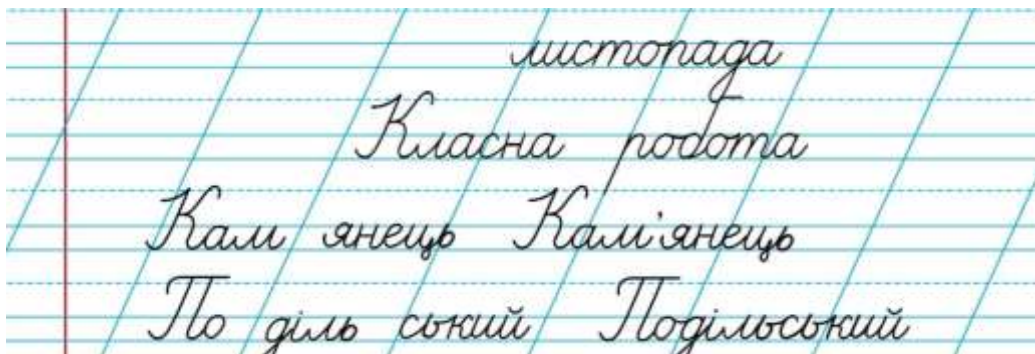 листопада
Класна робота
Кам янець Кам'янець
По діль ський Подільський